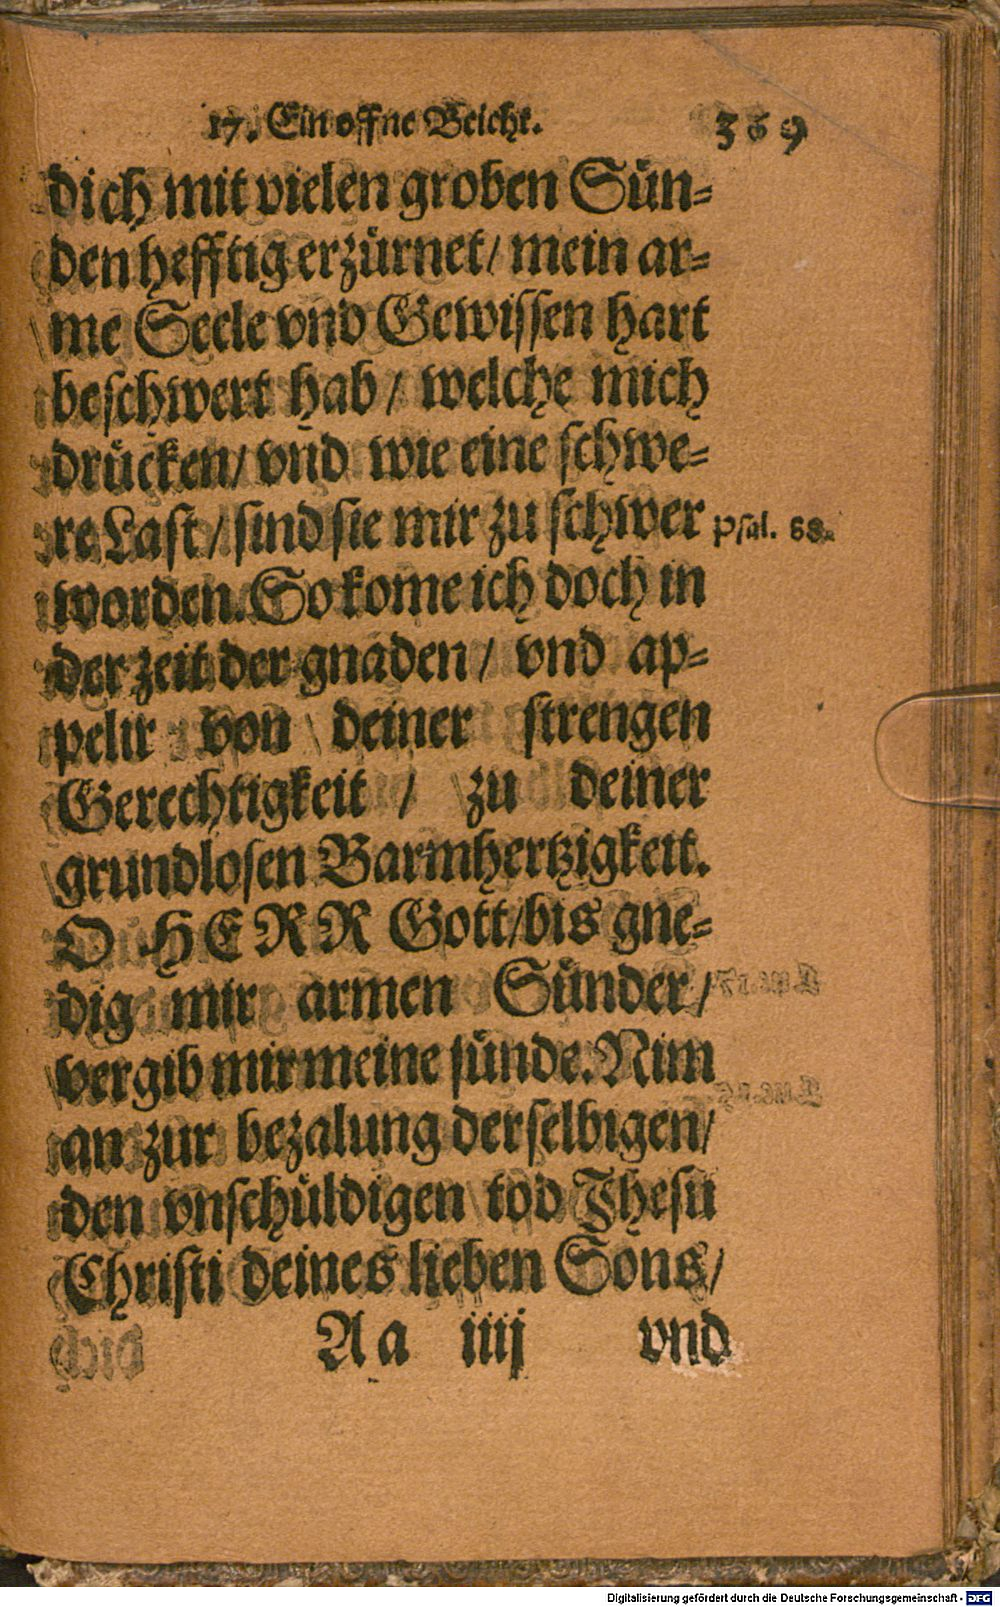 17. Ein offne Beicht. 369
dich mit vielen groben Sün⸗
den hefftig erzürnet/ mein ar⸗
me Seele vnd Gewissen hart
beschwert hab/ welche mich
drücken/ vnd wie eine schwe⸗
re Last/ sind sie mir zu schwer Psal. 68.
worden. So kome ich doch in
der zeit der gnaden/ vnd ap⸗
pelir von deiner strengen
Gerechtigkeit/ zu deiner
grundlosen Barmhertzigkeit.
O HERR Gott/ bis gne⸗
dig mir armen Sünder/
vergib mir meine sünde. Nim
an zur bezalung derselbigen/
den vnschüldigen tod Jhesu
Christi deines lieben Sons/
Aa iiij vnd
Digitalisierung gefördert durch die Deutsche Forschungsgemeinschaft - DFG